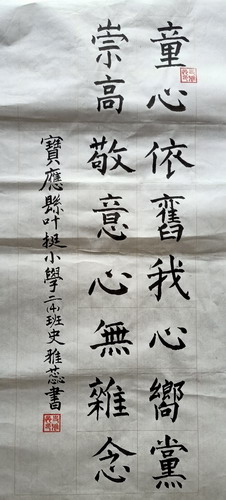 童心依舊我心嚮黨
崇高敬意心無雜念
寶應縣叶挺小學二4班史雅蕊書